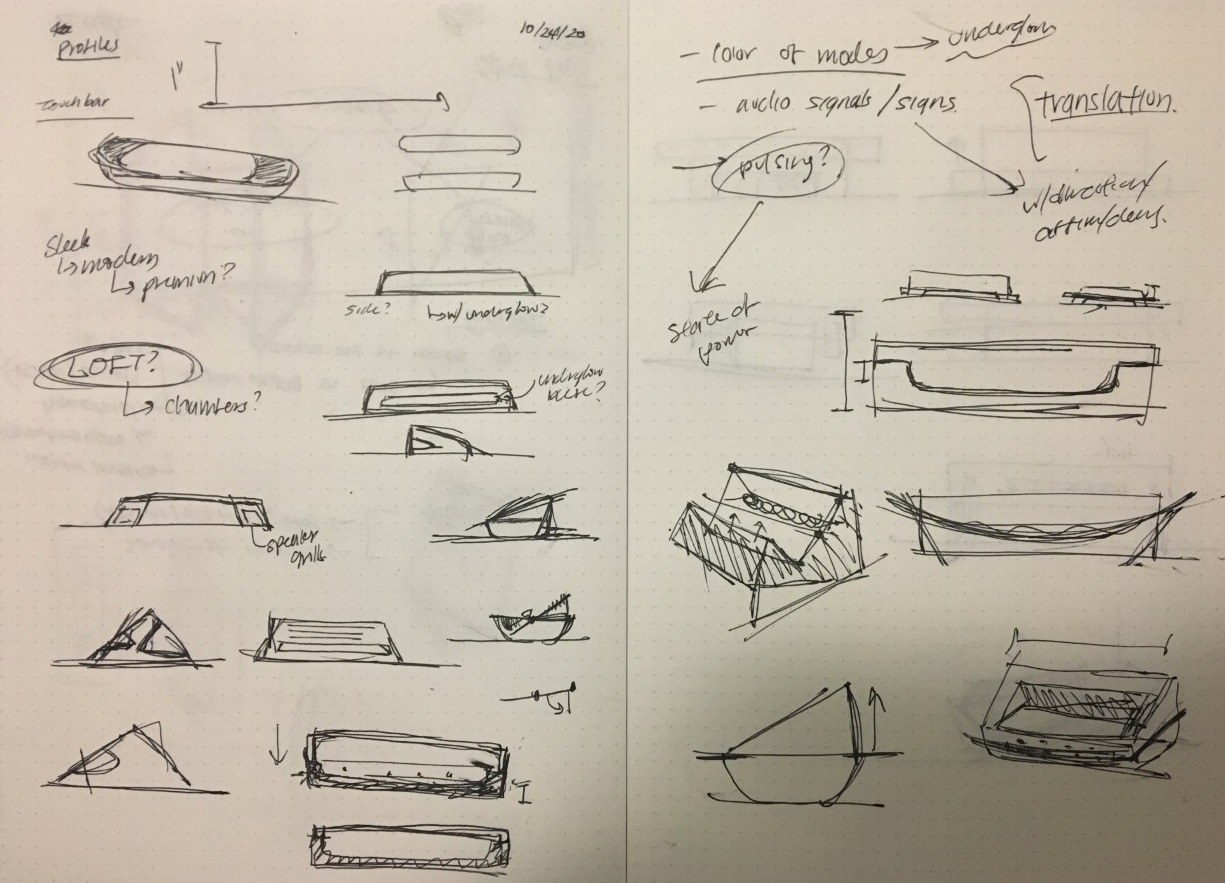 Profiles
10/24/20
1"
touchbar
sleek
↳ modern
↳ premium?
side?
↳ w/ underglow?
LOFT?
↳ chamfers?
underglow
speaker
grills
- color of modes → underglow
- audio signals/signs
translation.
pulsing?
state of
power